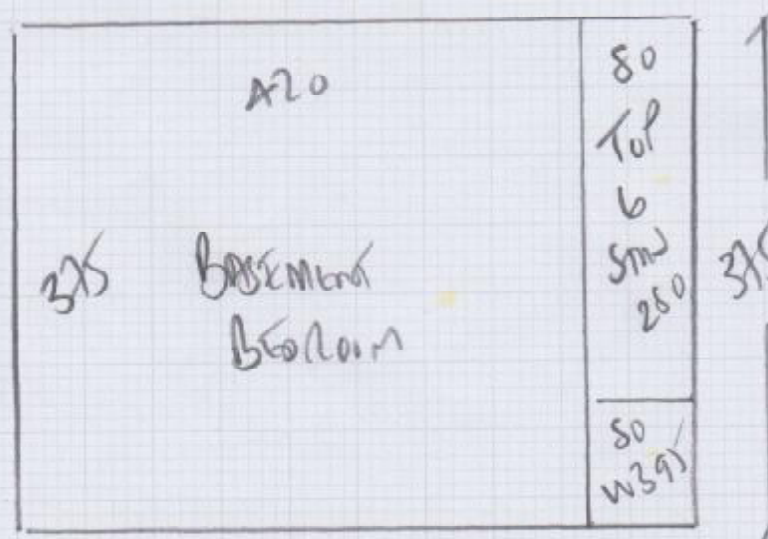 A20
375
BASEMENT
BEDROOM
80
TOP
6
STAW
280
80
W395
375